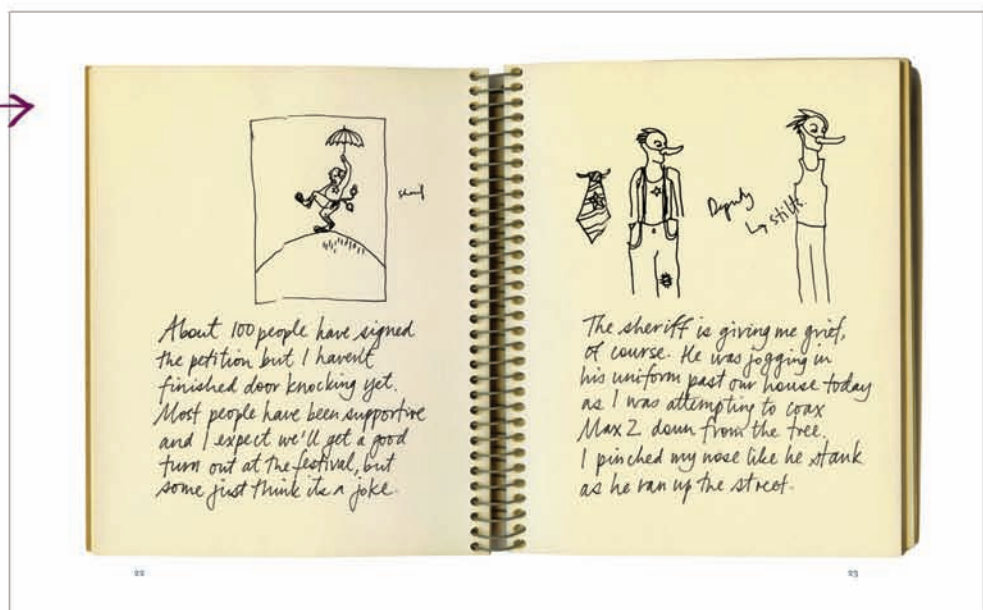 About 100 people have signed
the petition but I haven't
finished door knocking yet.
Most people have been supportive
and I expect we'll get a good
turn out at the festival, but
some just think its a joke.
22
Deputy
↳ stilts.
The sheriff is giving me grief,
of course. He was jogging in
his uniform past our house today
as I was attempting to coax
Max 2 down from the tree.
I pinched my nose like he stank
as he ran up the street.
23